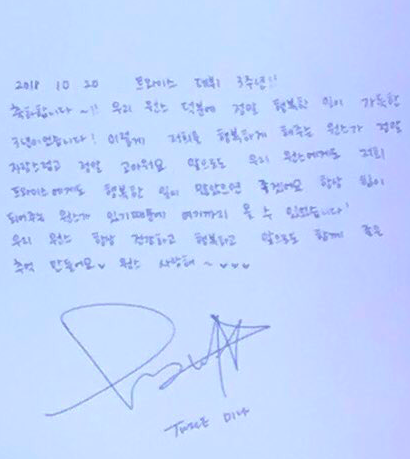 2018 10 20 트와이스 데뷔 3주년!!
축하합니다~!! 우리 원스 덕분에 정말 행복한 일이 가득한
3년이었습니다! 이렇게 저희를 행복하게 해주는 원스가 정말
자랑스럽고 정말 고마워요 앞으로도 우리 원스에게도 저희
트와이스에게도 행복한 일이 많았으면 좋겠어요 항상 힘이
되어주는 원스가 있기때문에 여기까지 올 수 있었습니다!
우리 원스 항상 건강하고 행복하고 앞으로도 함께 좋은
추억 만들어요♥ 원스 사랑해~ ♥♥♥
TWICE